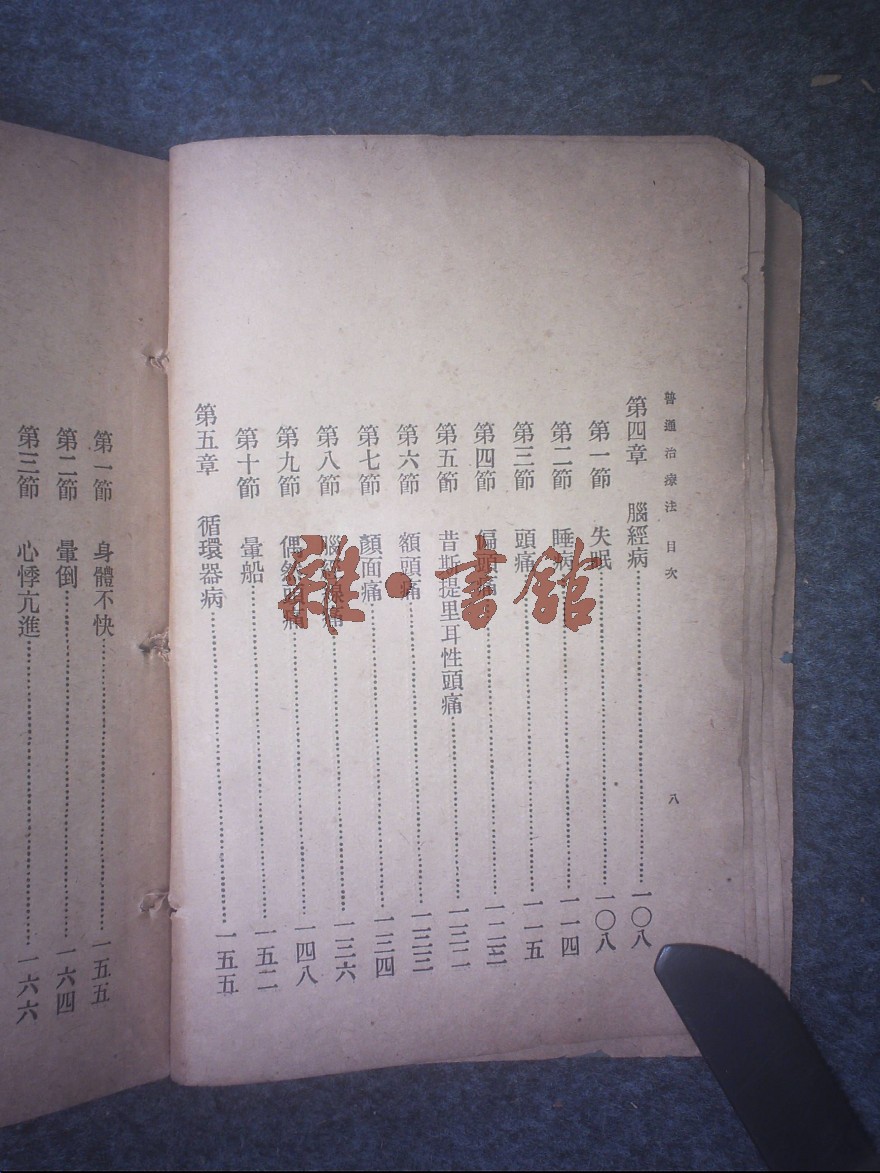 普通治療法 目次
八
第四章 腦經病……一〇八
第一節 失眠……一〇八
第二節 睡病……一一四
第三節 頭痛……一一五
第四節 偏頭痛……一二三
第五節 昔斯提里耳性頭痛……一三二
第六節 額頭痛……一三三
第七節 顏面痛……一三四
第八節 腦經線痛……一三六
第九節 偶然頭痛……一四八
第十節 暈船……一五二
第五章 循環器病……一五五
第一節 身體不快……一五五
第二節 暈倒……一六四
第三節 心悸亢進……一六六
雜·書館